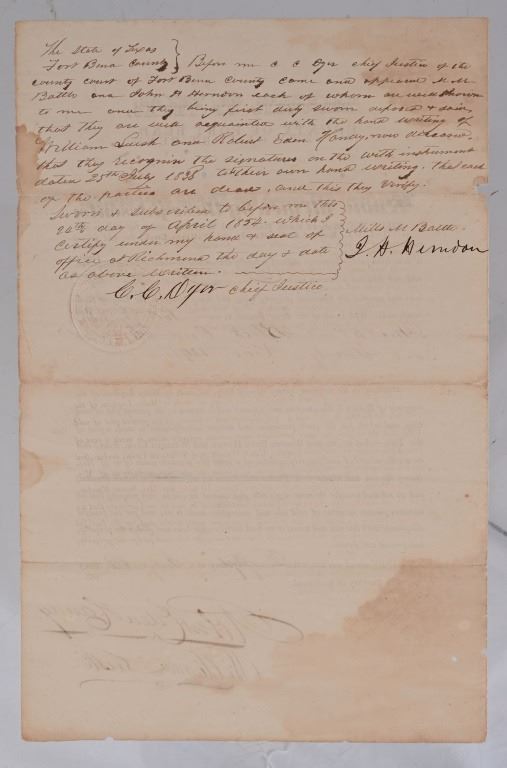 The State of Texas
Fort Bend County } Before me C C Dyer Chief Justice of the
county court of Fort Bend County came and appeared M M
Battle and John H Herndon each of whom are well known
to me and they being first duly sworn depose & say
that they are well acquainted with the hand writing of
William Lusk and Robert Eden Handy, now deceased
that they recognise the signatures on the with instrument
dated 25th July 1838 to their own hand writing. that each
of the parties are dead, and this they verify.
Sworn & subscribed to before me this
24th day of April 1854. which I
certify under my hand & seal of
office at Richmond the day & date
as above written.
Mills M Battle
J. H. Herndon
C. C. Dyer Chief Justice